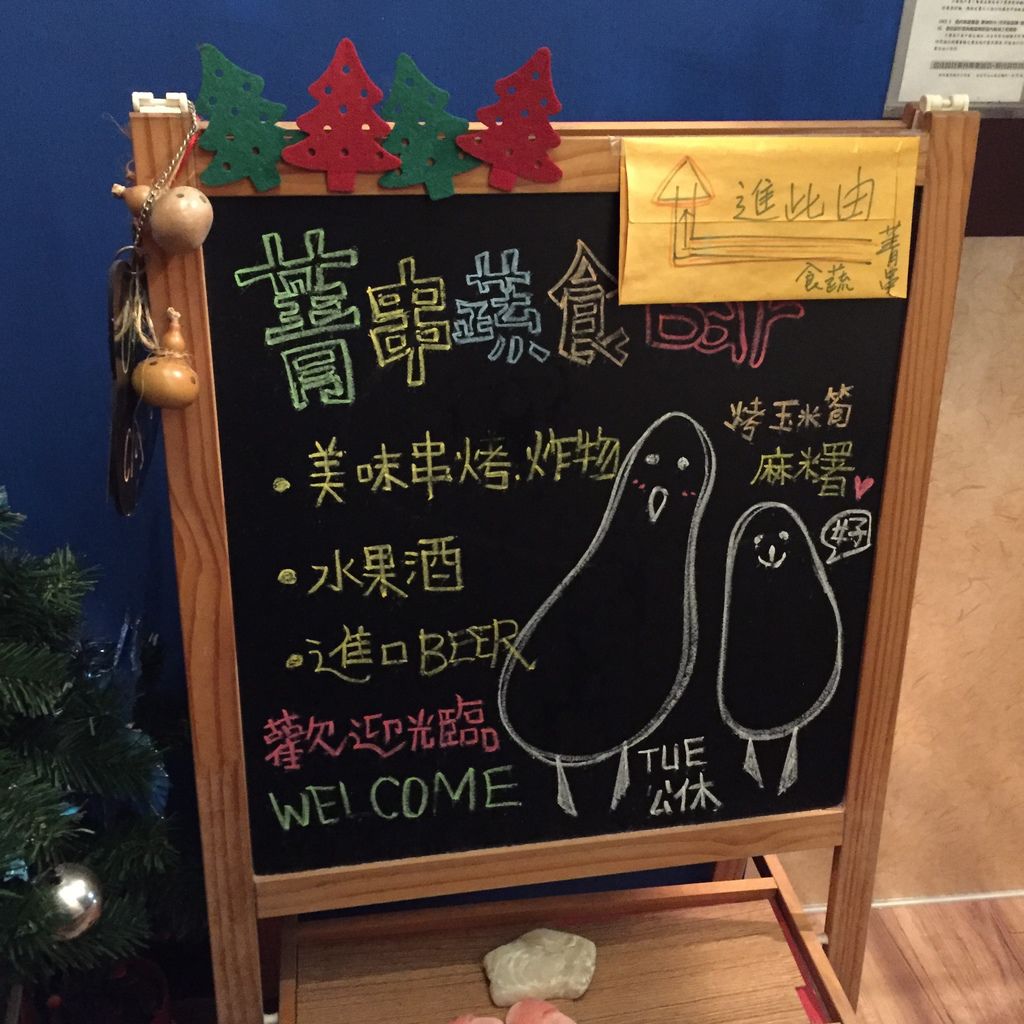 進比由
菁串
食蔬
菁串蔬食Bar
烤玉米筍
麻糬
•美味串烤.炸物
好
•水果酒
•進口BEER
歡迎光臨
WELCOME
TUE
公休